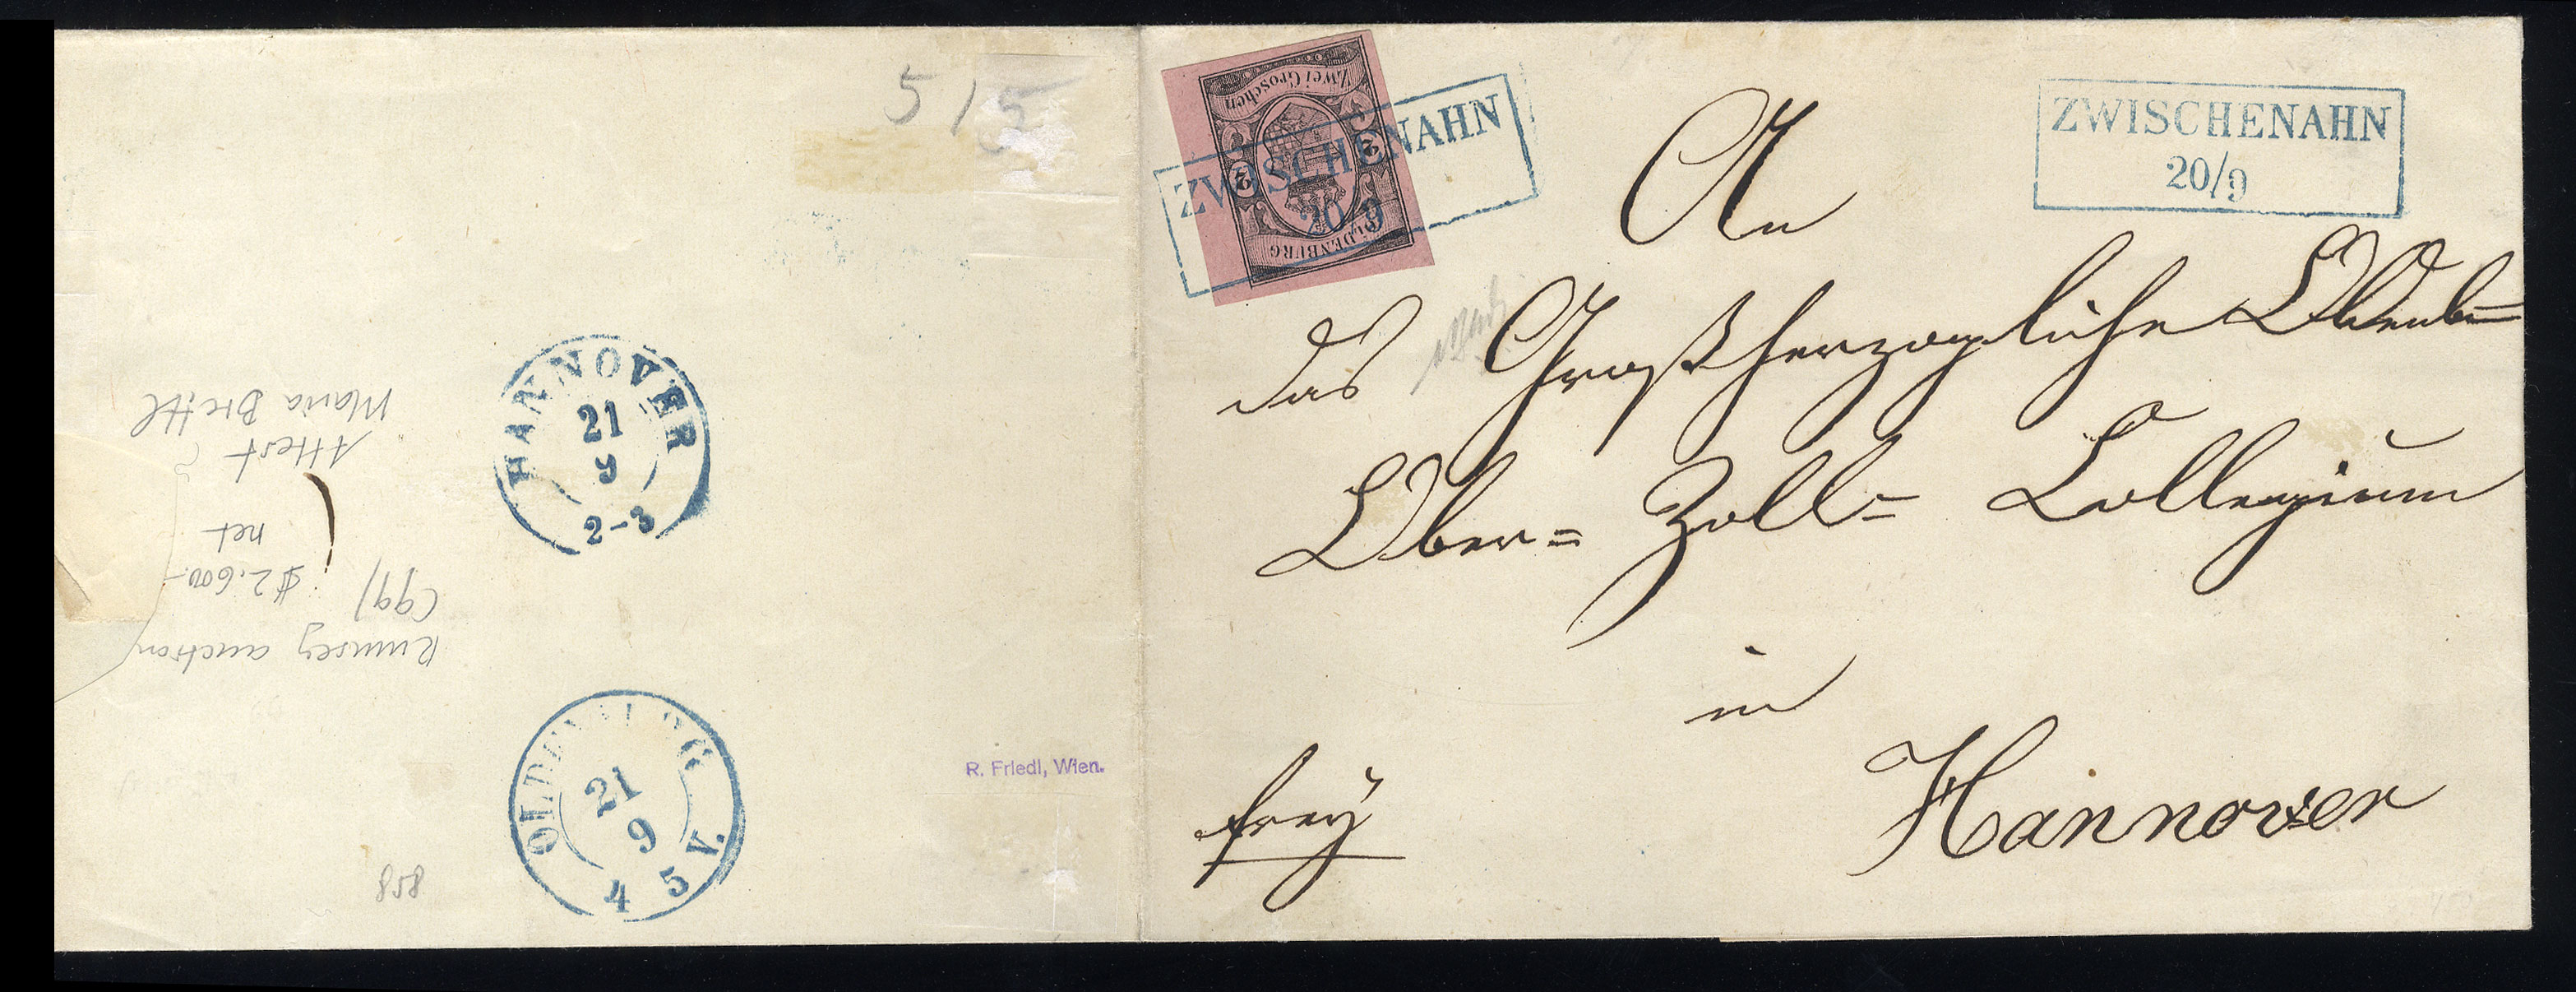 515
HANNOVER
21
9
2-3
Maria Brettl
Attest
net
$2.600.-
(99)
Rumsey auction
OLDENBURG
21
9
4 5 V.
858
R. Friedl, Wien.
Zwei Groschen
2 2
OLDENBURG
ZWISCHENAHN
20 9
ZWISCHENAHN
20/9
An
das Großherzogliche Oldenb=
Ober= Zoll= Collegium
in
Hannover
frey